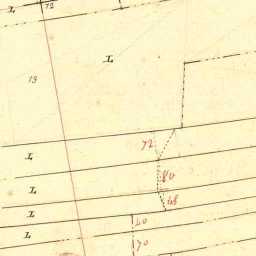 L
72
L
13
72
L
80
L
48
L
20
L
70